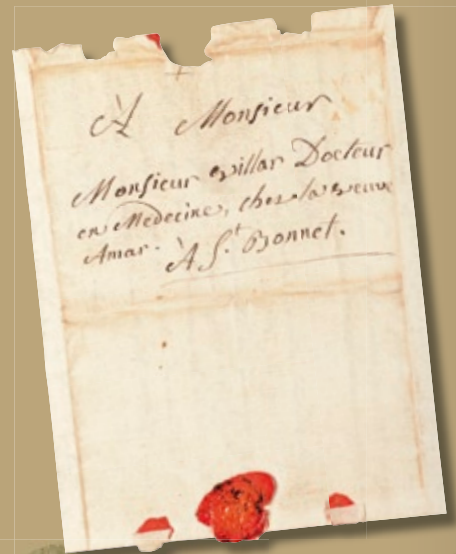 A Monsieur
Monsieur Villar Docteur
en Medecine, chez la veuve
Amar.
À St. Bonnet.